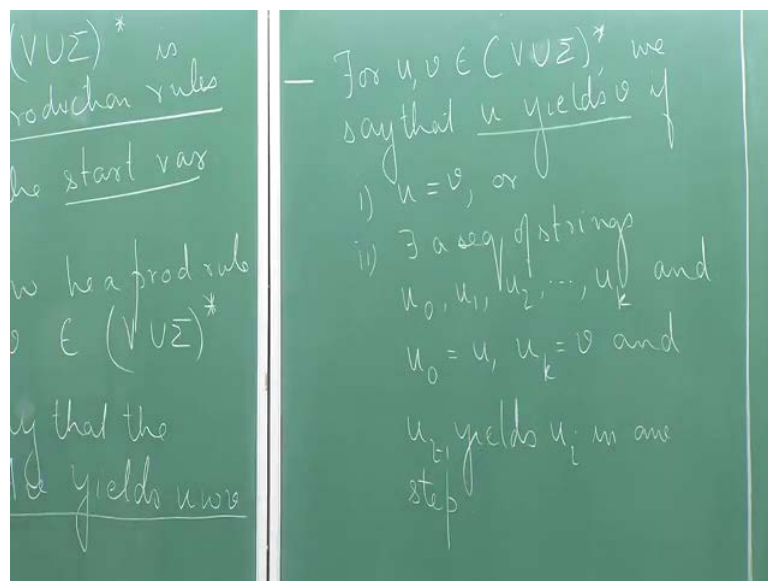 (V∪Σ)* is
roduction rules
he start var
w be a prod rule
v ∈ (V∪Σ)*
y that the
yields uwv
— For u, v ∈ (V∪Σ)*, we
say that u yields v if
i) u = v, or
ii) ∃ a seq of strings
u₀, u₁, u₂, ..., uₖ and
u₀ = u, uₖ = v and
uᵢ₋₁ yields uᵢ in one
step